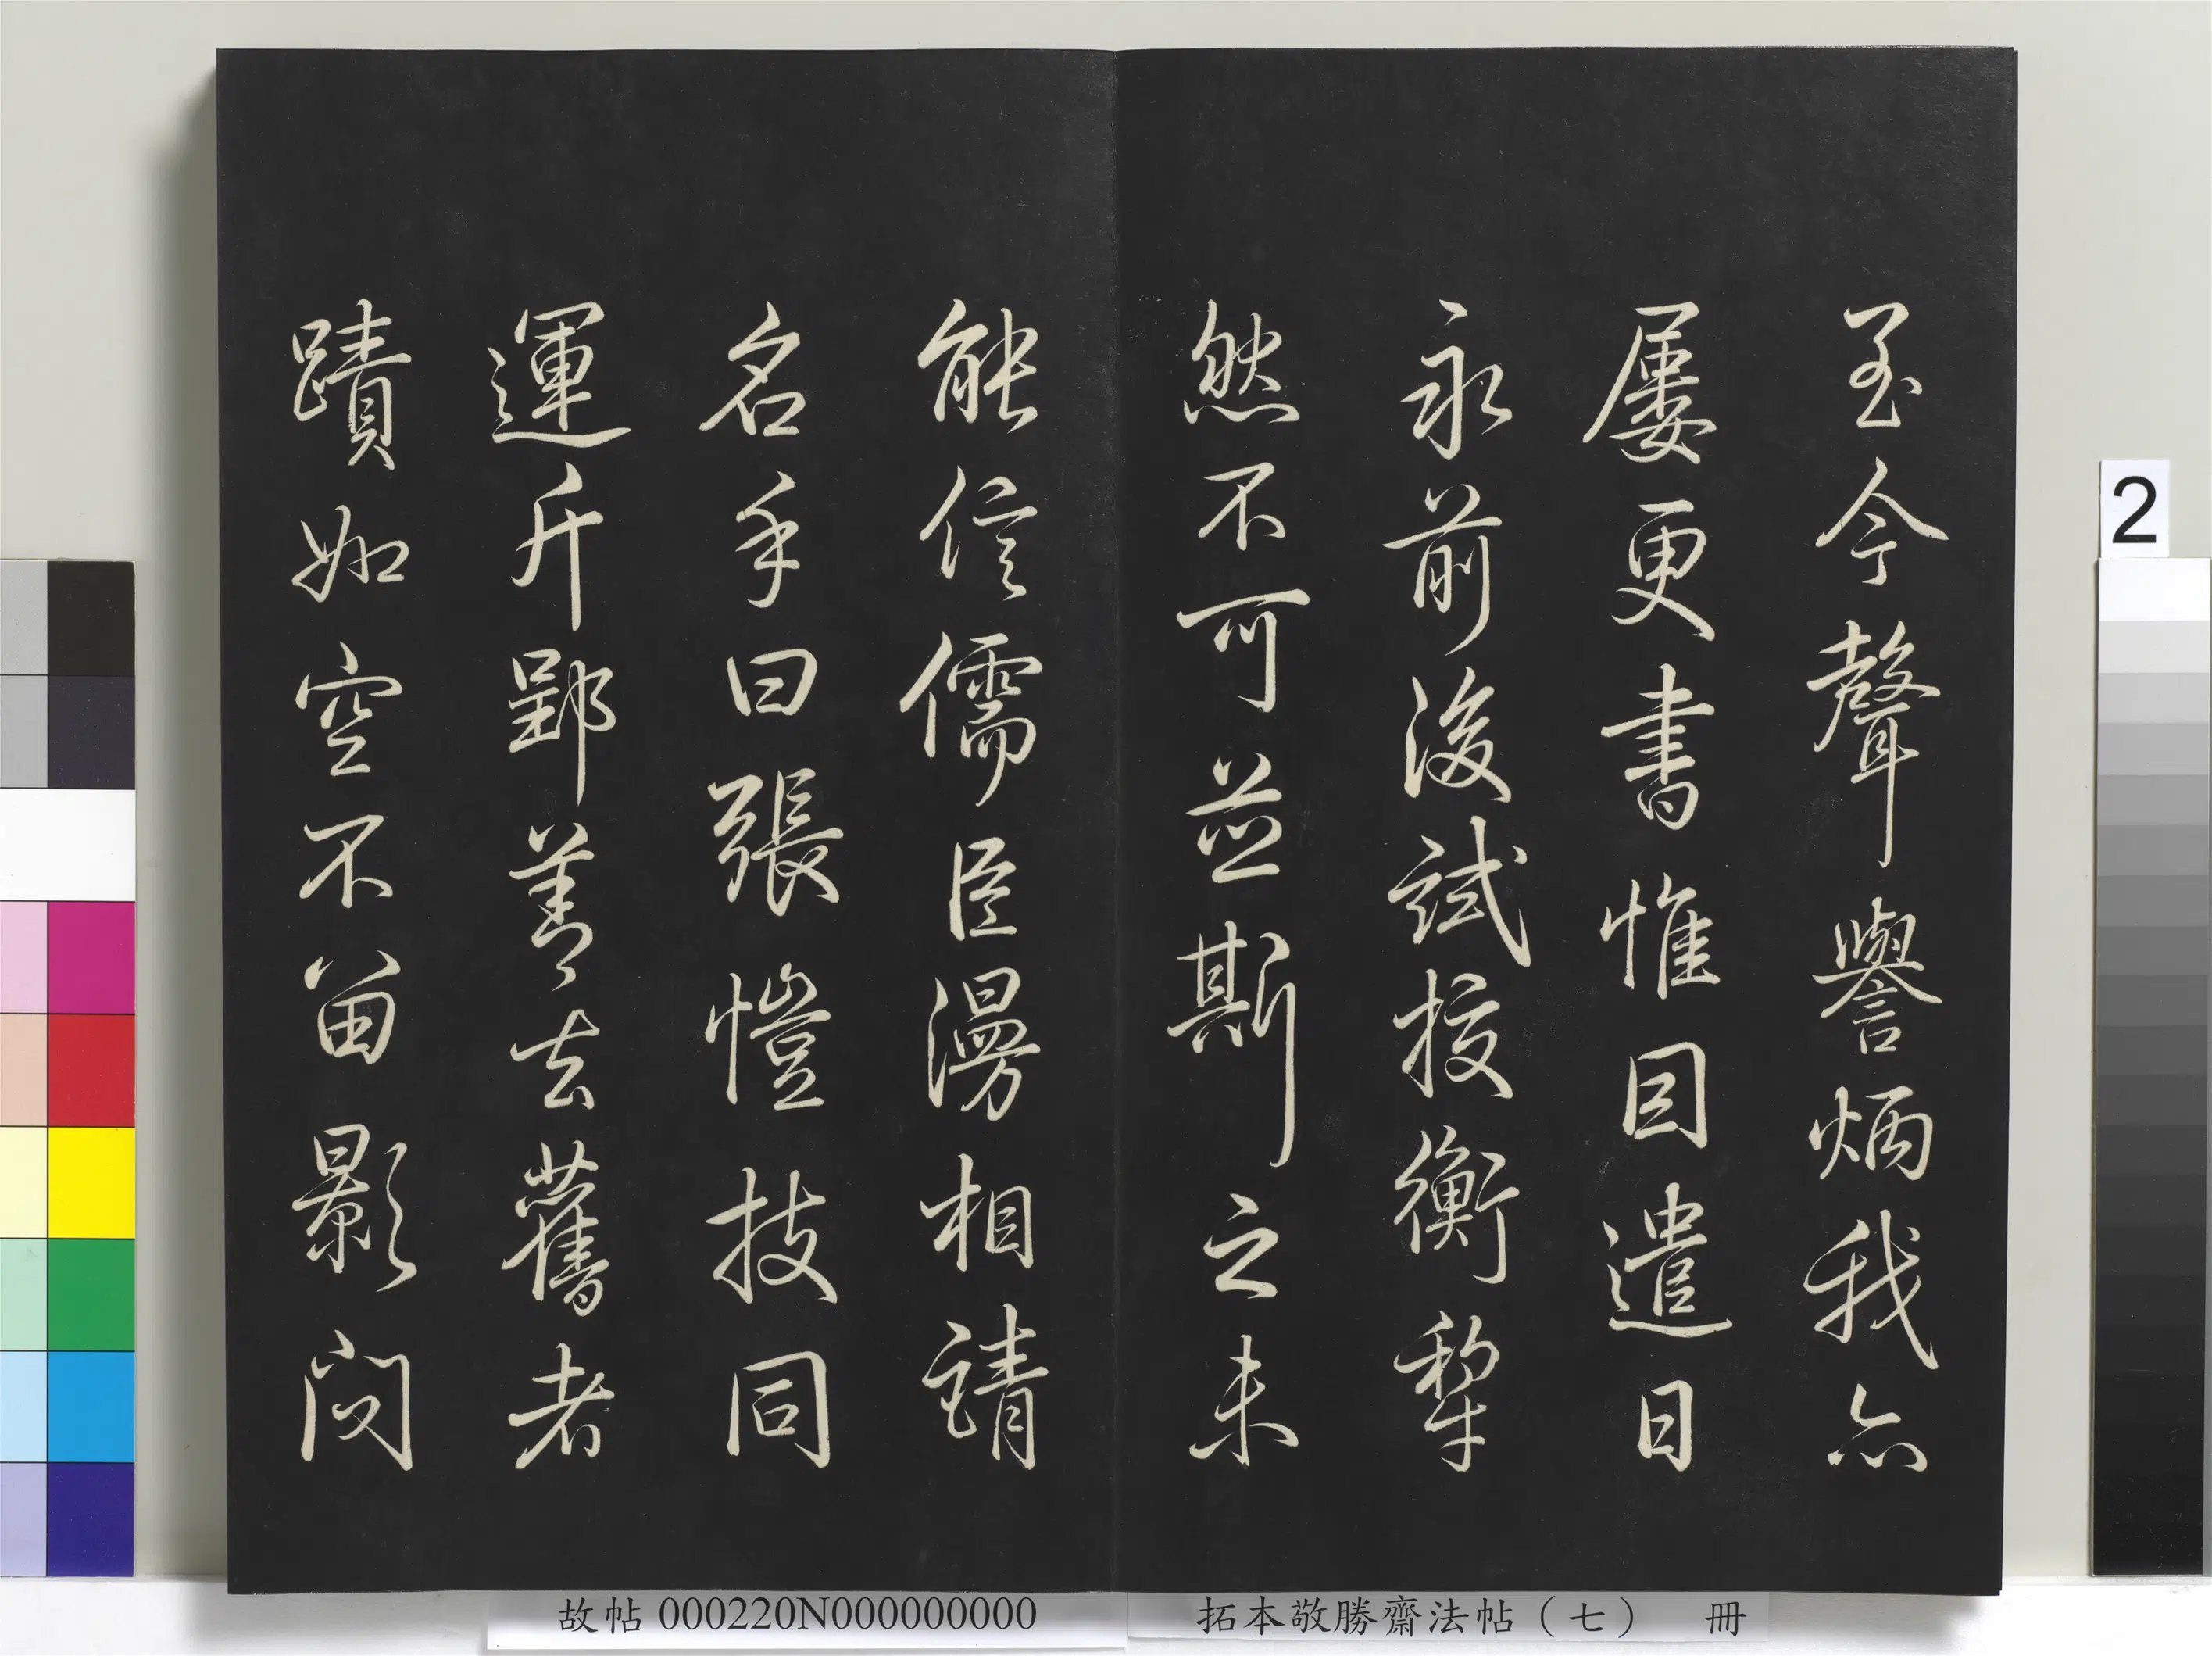 至今聲譽炳我亦
屢更書惟因遣日
永前後試挍衡犂
然不可並斯之未
能信儒臣漫相請
名手曰張愷技同
運斤郢善去舊者
蹟如空不留影閱
故帖 000220N000000000
拓本敬勝齋法帖（七） 冊
2